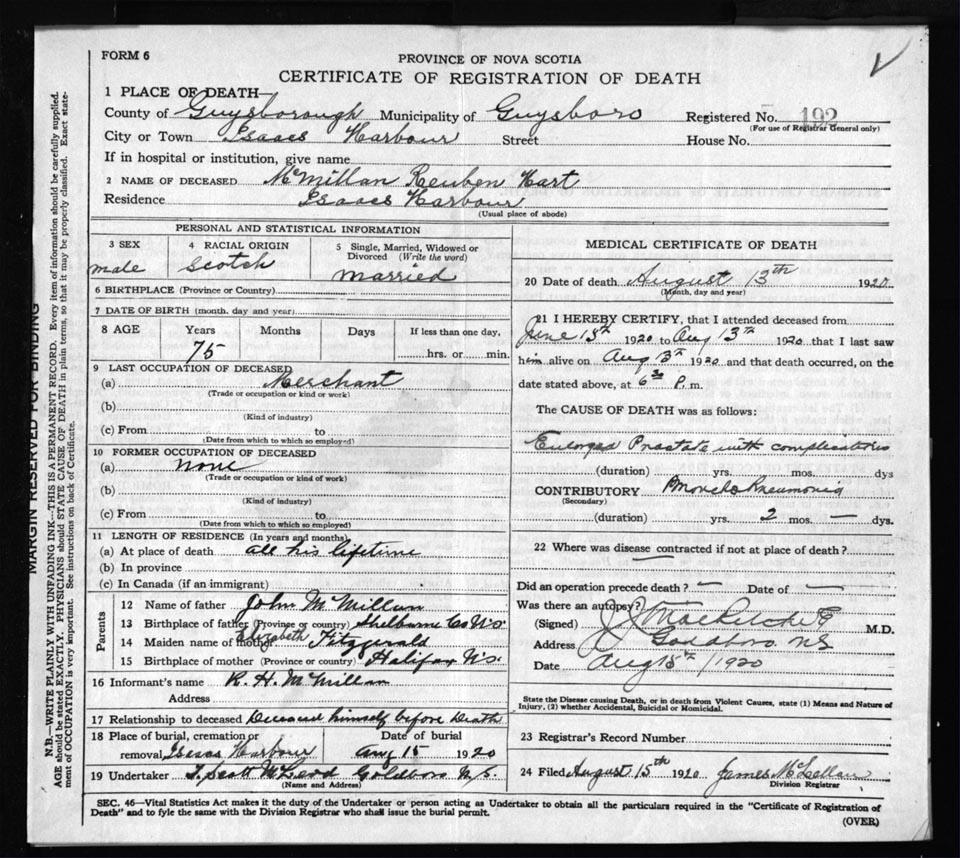 FORM 6
PROVINCE OF NOVA SCOTIA
CERTIFICATE OF REGISTRATION OF DEATH
1 PLACE OF DEATH—
County of Guysborough Municipality of Guysboro Registered No. 192
(For use of Registrar General only)
City or Town Isaacs Harbour Street House No.
If in hospital or institution, give name
2 NAME OF DECEASED McMillan Reuben Hart
Residence Isaacs Harbour
(Usual place of abode)
PERSONAL AND STATISTICAL INFORMATION
3 SEX male
4 RACIAL ORIGIN Scotch
5 Single, Married, Widowed or Divorced (Write the word) married
6 BIRTHPLACE (Province or Country)
7 DATE OF BIRTH (month, day and year)
8 AGE Years Months Days If less than one day,
75 hrs. or min.
9 LAST OCCUPATION OF DECEASED
(a) Merchant
(Trade or occupation or kind or work)
(b)
(Kind of industry)
(c) From to
(Date from which to which so employed)
10 FORMER OCCUPATION OF DECEASED
(a) none
(Trade or occupation or kind of work)
(b)
(Kind of industry)
(c) From to
(Date from which to which so employed)
11 LENGTH OF RESIDENCE (In years and months)
(a) At place of death all his lifetime
(b) In province
(c) In Canada (if an immigrant)
Parents
12 Name of father John McMillan
13 Birthplace of father (Province or country) Shelburne Co N.S.
14 Maiden name of mother Elizabeth Fitzgerald
15 Birthplace of mother (Province or country) Halifax N.S.
16 Informant's name R. H. McMillan
Address
17 Relationship to deceased Deceased himself before Death
18 Place of burial, cremation or Date of burial
removal Isaacs Harbour Aug 15 1920
19 Undertaker T. Scott McLeod Goldboro N.S.
(Name and Address)
MEDICAL CERTIFICATE OF DEATH
20 Date of death August 13th 1920
(Month, day and year)
21 I HEREBY CERTIFY, that I attended deceased from
June 15th 1920 to Aug 13th 1920 that I last saw
him alive on Aug 13th 1920 and that death occurred, on the
date stated above, at 6 30 P. m.
The CAUSE OF DEATH was as follows:
Enlarged Prostate with complications
(duration) yrs. mos. dys
CONTRIBUTORY Broncho Pneumonia
(Secondary)
(duration) yrs. 2 mos. — dys.
22 Where was disease contracted if not at place of death?
—
Did an operation precede death? — Date of —
Was there an autopsy?
(Signed) M.D.
Address Goldboro N.S.
Date Aug 15th / 1920
State the Disease causing Death, or in death from Violent Causes, state (1) Means and Nature of
Injury, (2) whether Accidental, Suicidal or Homicidal.
23 Registrar's Record Number
24 Filed August 15th 1920 James McLellan
Division Registrar
SEC. 46—Vital Statistics Act makes it the duty of the Undertaker or person acting as Undertaker to obtain all the particulars required in the "Certificate of Registration of
Death" and to fyle the same with the Division Registrar who shall issue the burial permit.
(OVER)
MARGIN RESERVED FOR BINDING
N.B.—WRITE PLAINLY WITH UNFADING INK—THIS IS A PERMANENT RECORD. Every item of information should be carefully supplied.
AGE should be stated EXACTLY. PHYSICIANS should STATE CAUSE OF DEATH in plain terms, so that it may be properly classified. Exact state-
ment of OCCUPATION is very important. See instructions on back of Certificate.